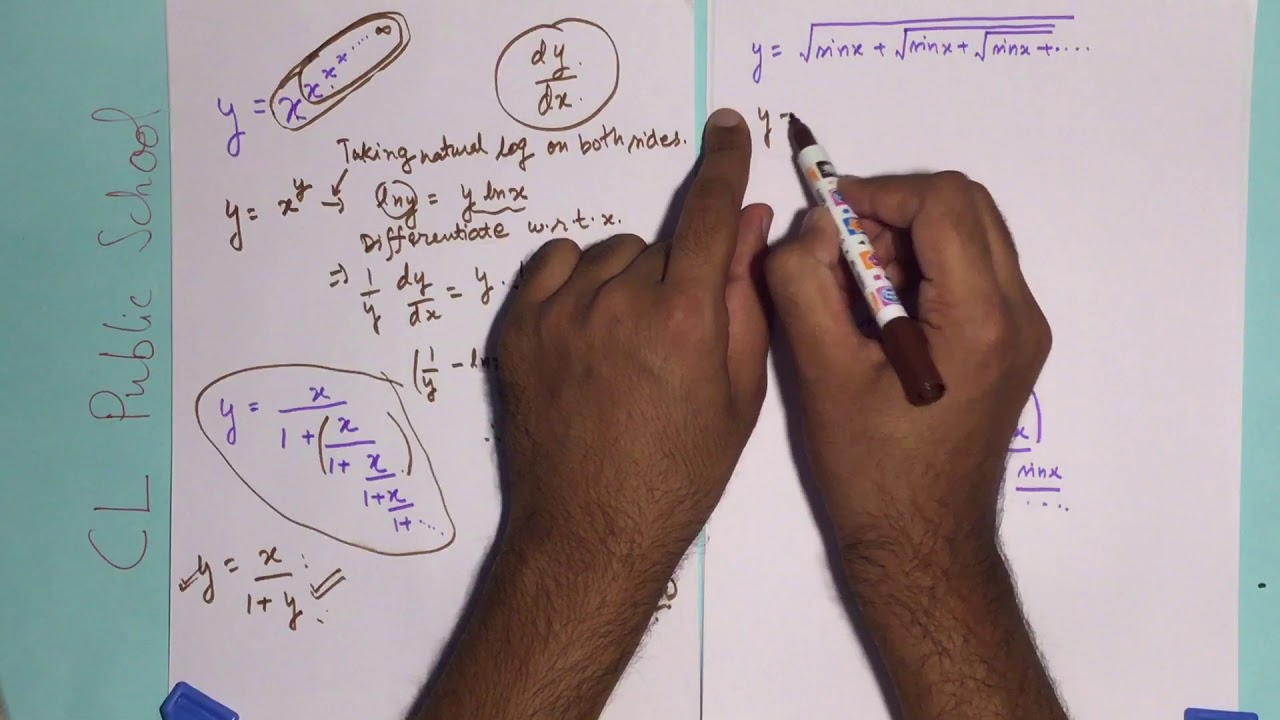 CL Public School
y = x^x^x^x^.....∞
dy/dx
Taking natural log on both sides.
y = x^y → lny = y lnx
Differentiate w.r.t. x.
⇒ 1/y dy/dx = y.
(1/y - ln
y = x/(1+(x/(1+x/(1+x/(1+.....
y = x/(1+y)
y = √sinx + √sinx + √sinx + ....
y =
sinx
....